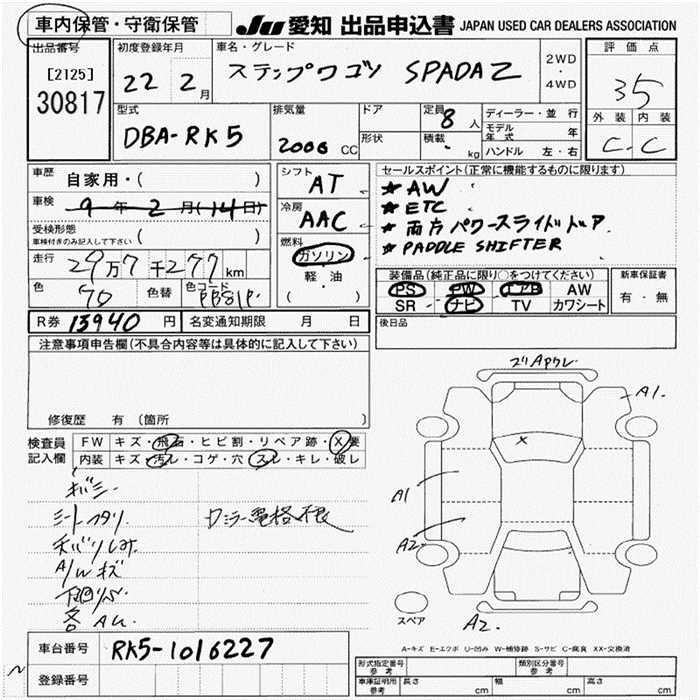 車内保管・守衛保管
JU 愛知 出品申込書 JAPAN USED CAR DEALERS ASSOCIATION
出品番号
[2125]
30817
初度登録年月
22 2月
車名・グレード
ステップワゴン SPADA Z
2WD
・
4WD
評価点
35
外装 内装
C C
型式
DBA-RK5
排気量
2000 CC
ドア
形状
定員 8人
積載 kg
ディーラー・並行
モデル年式 年
ハンドル 左・右
車歴 自家用・( )
車検 9年2月(14日)
受検形態
車検付きのみ記入して下さい ( )
走行 29万7千277km
色 70 色替 色コード
R券 13940円 名変通知期限 月 日
シフト AT
冷房 AAC
燃料
ガソリン
軽油
( )
セールスポイント(正常に機能するものに限ります)
★ AW
★ ETC
★ 両方パワースライドドア
★ PADDLE SHIFTER
装備品(純正品に限り○をつけてください)
PS PW エアB AW
SR ナビ TV カワシート
新車保証書
有・無
後日品
注意事項申告欄(不具合内容等は具体的に記入して下さい)
修復歴 有 (箇所
検査員記入欄
FW キズ・飛石・ヒビ割・リペア跡・X要
内装 キズ・汚レ・コゲ・穴・スレ・キレ・破レ
シートヘタリ
A/Wキズ
A1.
X
A1
A2
A2.
スペア
A-キズ E-エクボ U-凹み W-補修跡 S-サビ C-腐食 XX-交換済
車台番号 RK5-1016227
登録番号
形式指定番号
参考
類別区分番号
参考
車庫証明用
参考
長さ cm 幅 cm 高さ cm